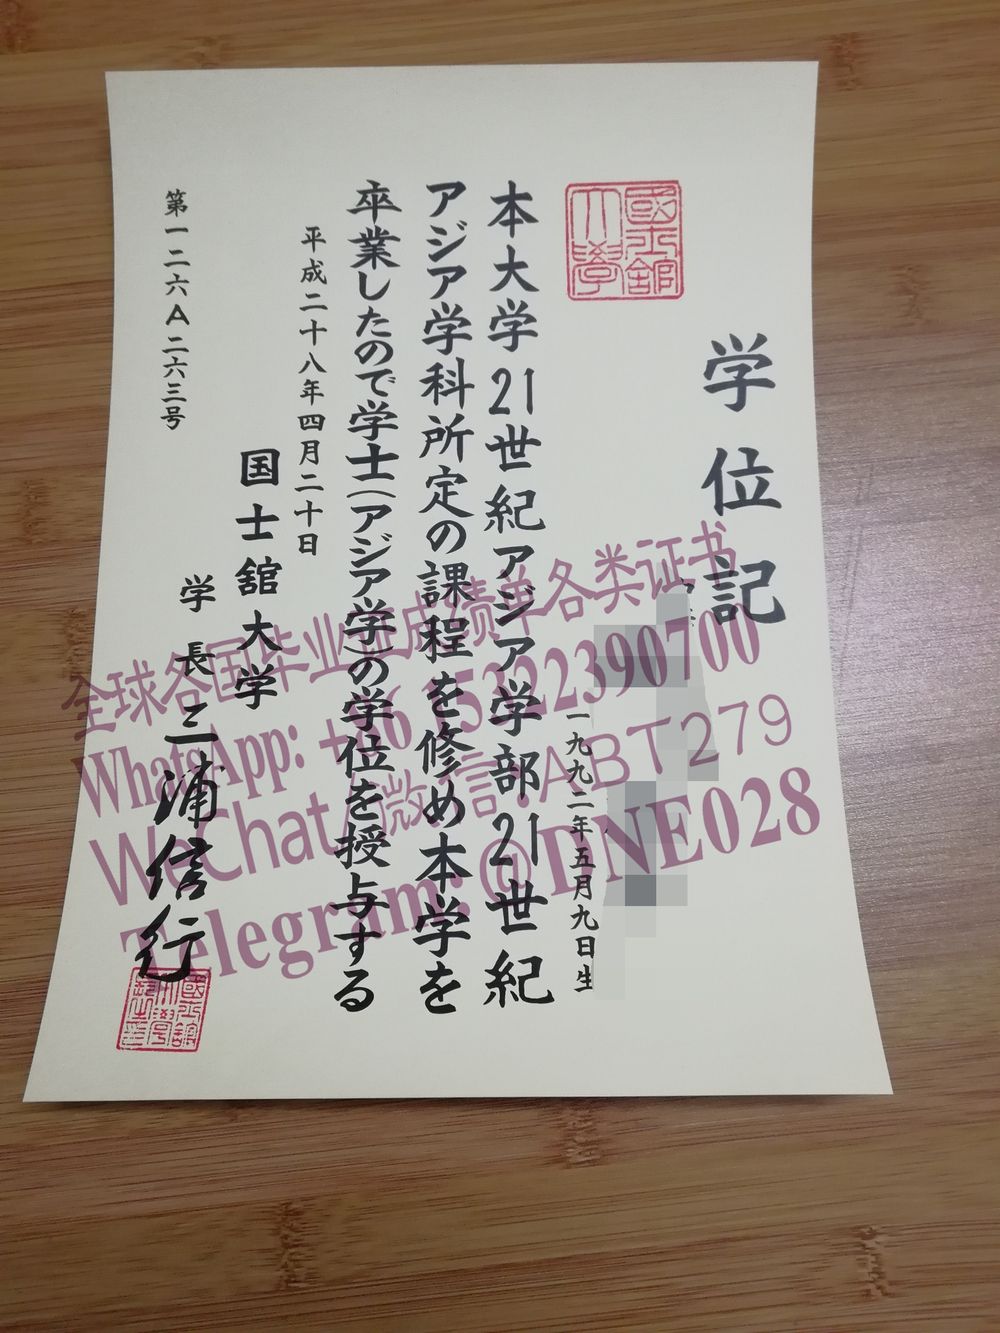 國士舘
大學
学位記
一九九二年五月九日生
本大学21世紀アジア学部21世紀
アジア学科所定の課程を修め本学を
卒業したので学士(アジア学)の学位を授与する
平成二十八年四月二十日
国士舘大学
学長 三浦信行
第一二六A二六三号
全球各国毕业证成绩单各类证书
WhatsApp: +86 15322390700
WeChat/微信:ABT279
Telegram: @DNE028